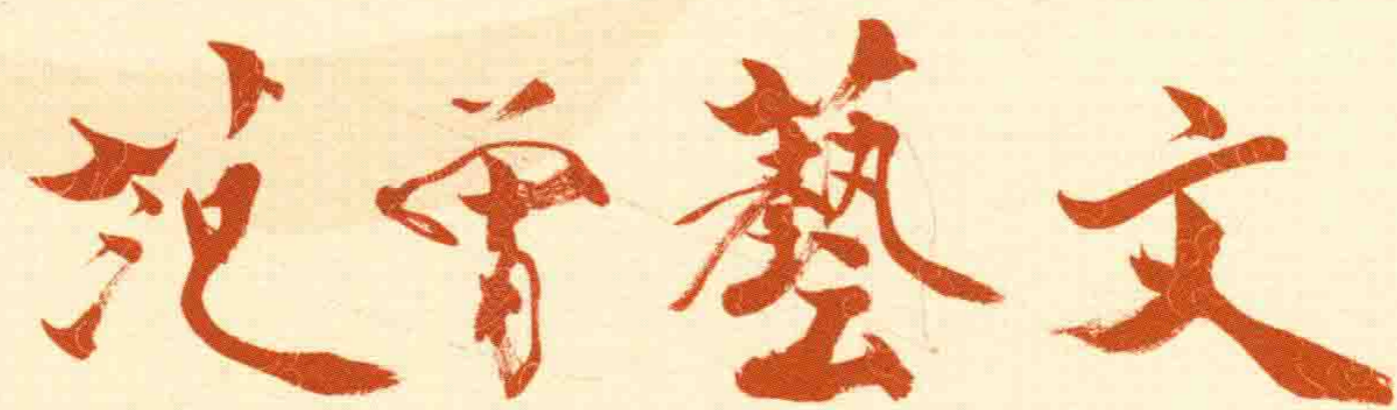 范曾藝文